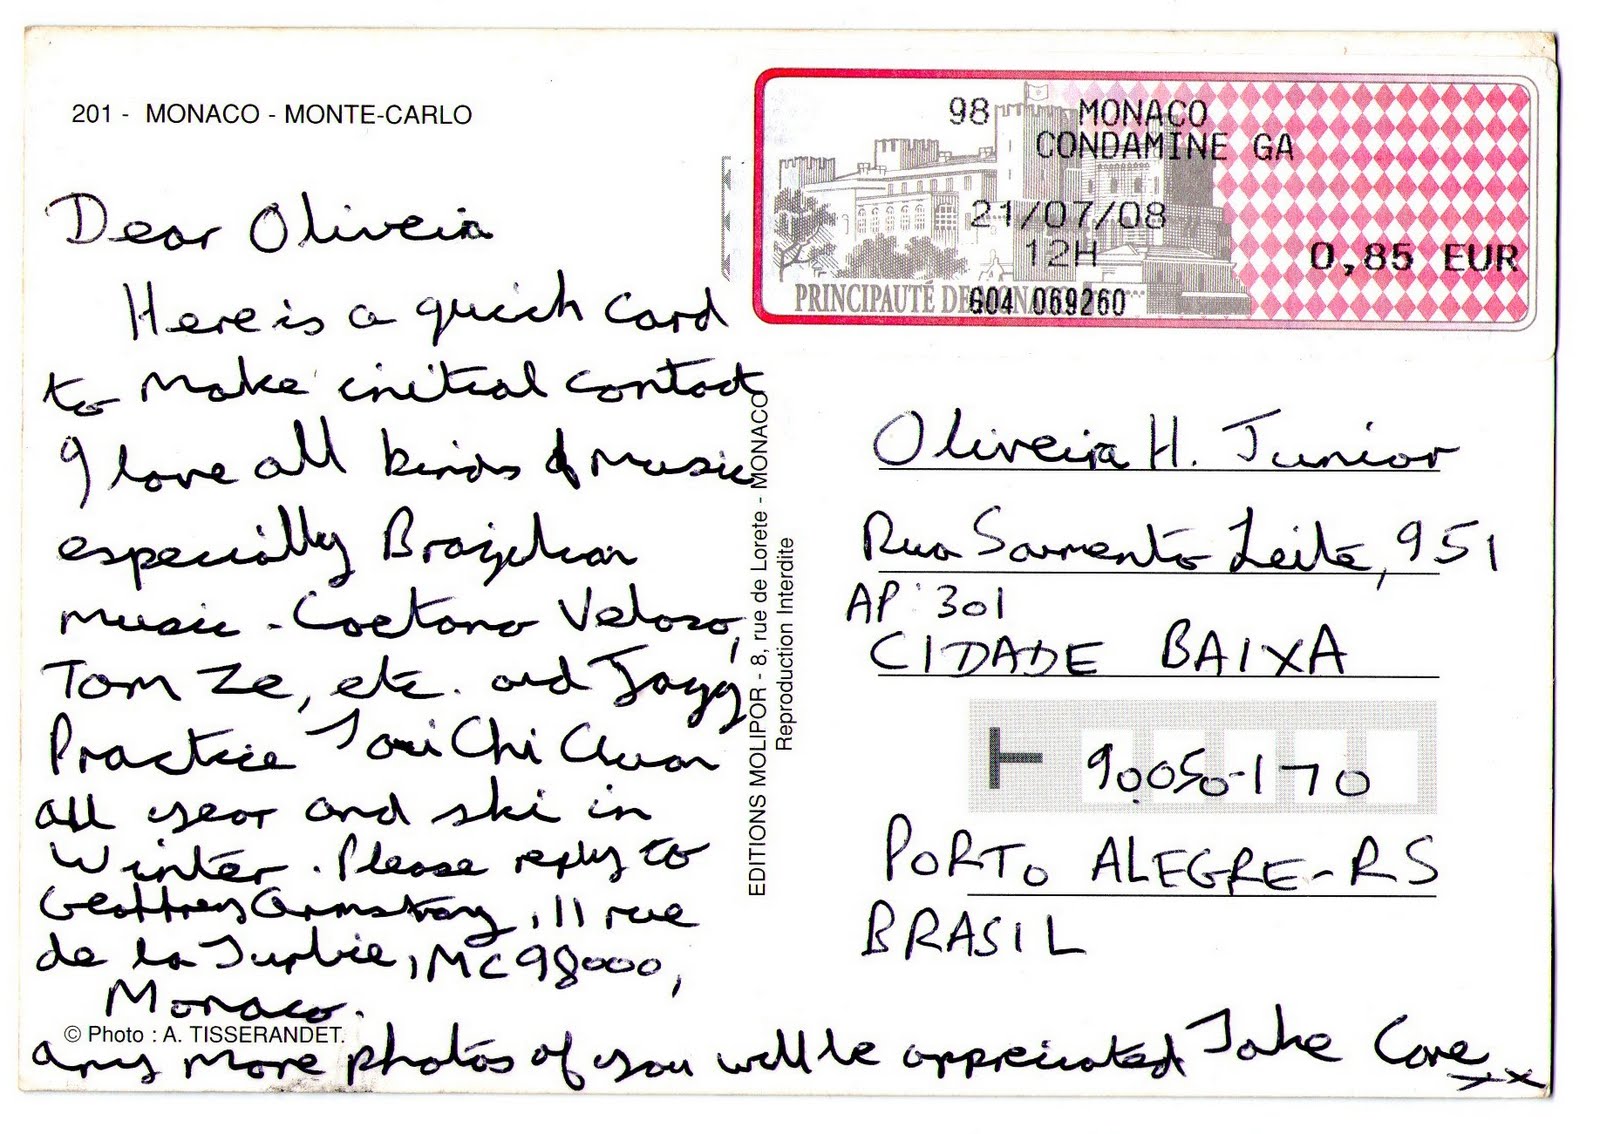 201 - MONACO - MONTE-CARLO
98 MONACO
CONDAMINE GA
21/07/08
12H
0,85 EUR
PRINCIPAUTÉ DE MONACO
G04 069260
Dear Oliveira
Here is a quick card
to make initial contact
I love all kinds of music
especially Brazilian
music - Caetano Veloso,
Tom Ze, etc. and Jazz
Practice Tai Chi Chuan
all year and ski in
Winter. Please reply to
Geoffrey Armstrong, 11 rue
de la Turbie, MC98000,
Monaco.
© Photo : A. TISSERANDET.
any more photos of you will be appreciated Take Care xx
EDITIONS MOLIPOR - 8, rue de Lorete - MONACO
Reproduction Interdite
Oliveira H. Junior
Rua Sarmento Leite, 951
AP: 301
CIDADE BAIXA
T 90050-170
PORTO ALEGRE-RS
BRASIL